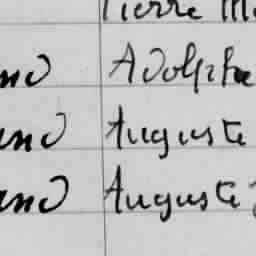 Pierre M
nd Adolphe
and Auguste
and Auguste